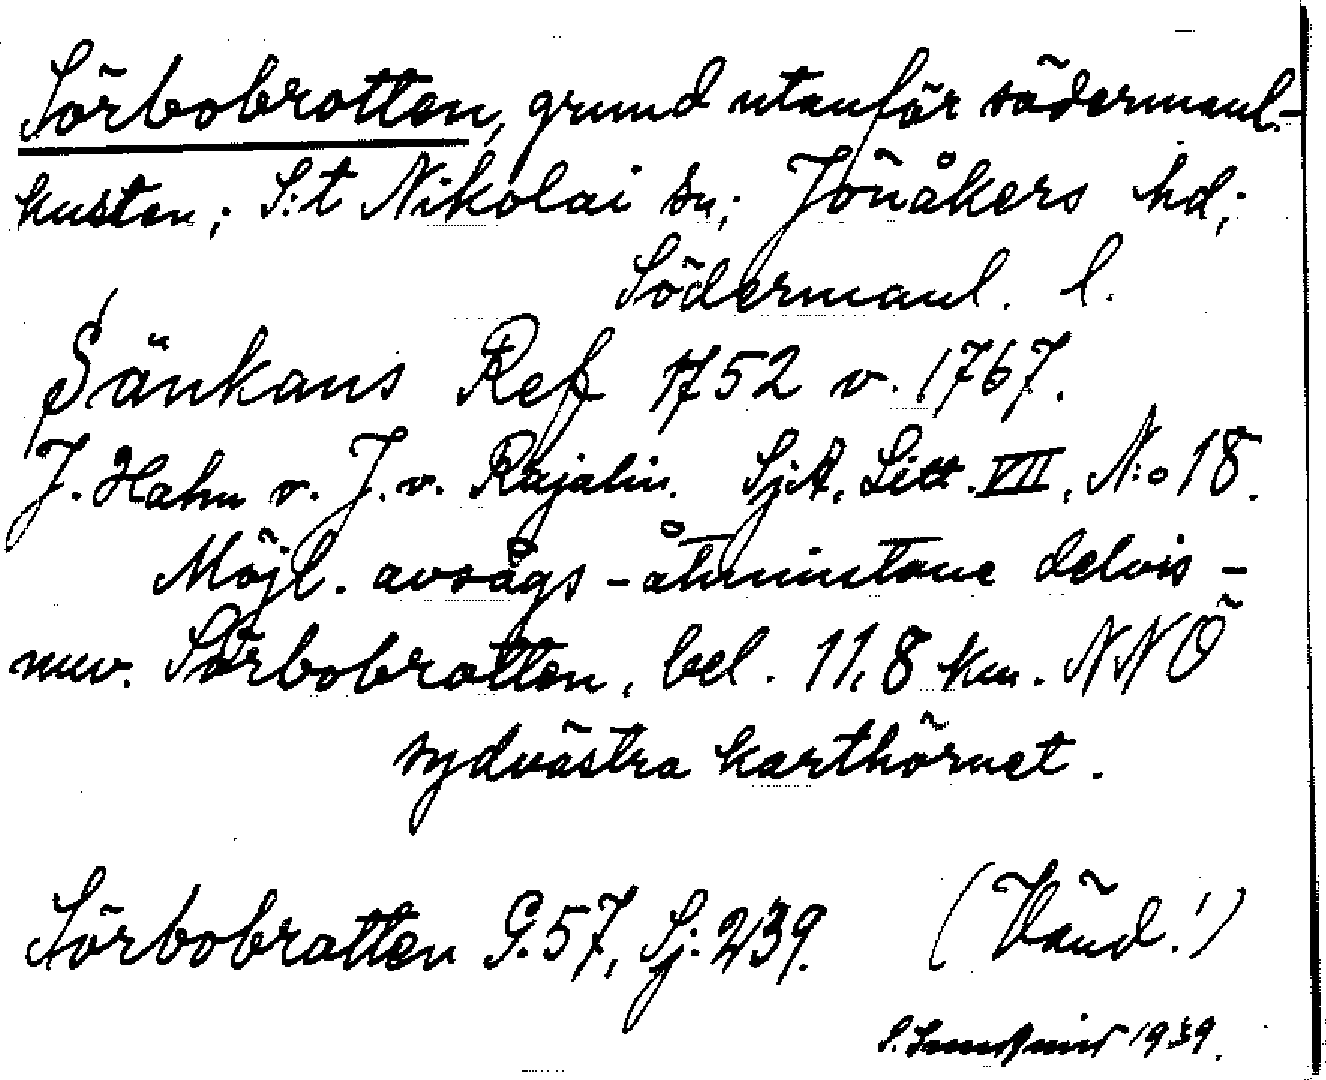 Sörbobrotten, grund utanför södermanl.-
kusten; S:t Nikolai sn; Jönåkers hd;
Södermanl. l.
Sänkans Ref 1752 o. 1767.
J. Hahn o. J. v. Rajalin. SjA, Litt. VII, N:o 18.
Möjl. avsågs - åtminstone delvis -
nuv. Sörbobrotten, bel. 11,8 km. NNÖ
sydvästra karthörnet.
Sörbobratten G. 57, Sj: 239. (Vänd!)
1939.